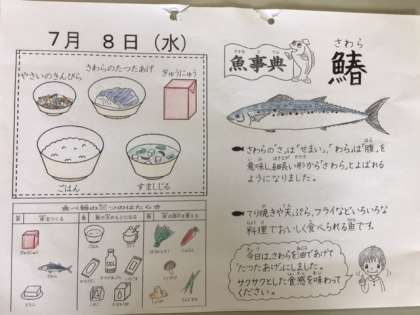 7月 8日(水)
さわらのたつたあげ
やさいのきんぴら
ぎゅうにゅう
ごはん
すましじる
食べ物の三つのはたらき
さかなじてん
魚事典
さわら
鰆
さわらの「さ」は「せまい」、「わら」は「腹」を
意味し細長い形から「さわら」とよばれる
ようになりました。
てり焼きや天ぷら、フライなどいろいろな
料理でおいしく食べられる魚です。
今日は、さわらを油であげて
「たつたあげ」にしました。
サクサクとした食感を味わって
ください。